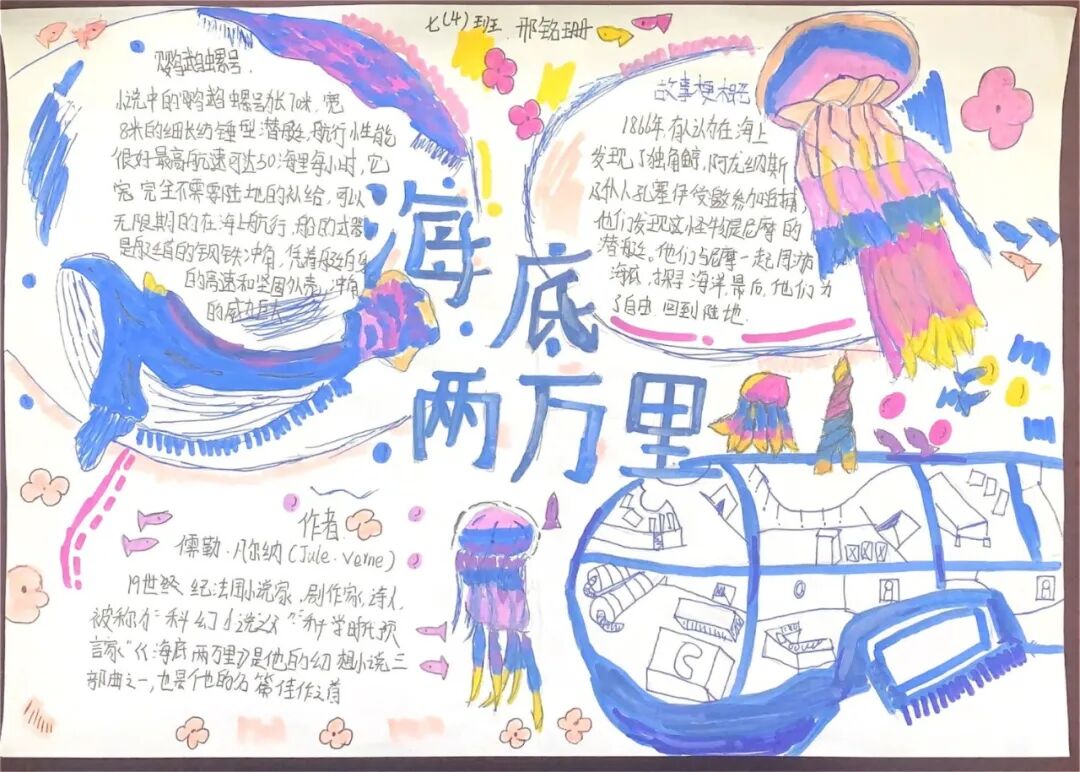 七(4)班 邢铭珊
鹦鹉螺号
小说中的鹦鹉螺号长70米，宽
8米的细长纺锤型潜艇，航行性能
很好最高航速可达50海里每小时，它
完全不需要陆地的补给，可以
无限期的在海上航行，船的武器
是艇艏的钢铁冲角，凭着艇自身
的高速和坚固外壳，冲角
的威力巨大
故事梗概
1866年有人认为在海上
发现了独角鲸，阿龙纳斯
及仆人孔塞伊受邀参加追捕
他们发现这怪物是尼摩的
潜艇。他们与尼摩一起周游
海底，探寻海洋，最后，他们为
了自由 回到陆地
海底
两万里
作者
儒勒·凡尔纳(Jule. Verne)
19世 纪法国小说家，剧作家，诗人
被称为“科幻小说之父”“科学时代预
言家”《海底两万里》是他的幻想小说三
部曲之一，也是他的名篇佳作之首